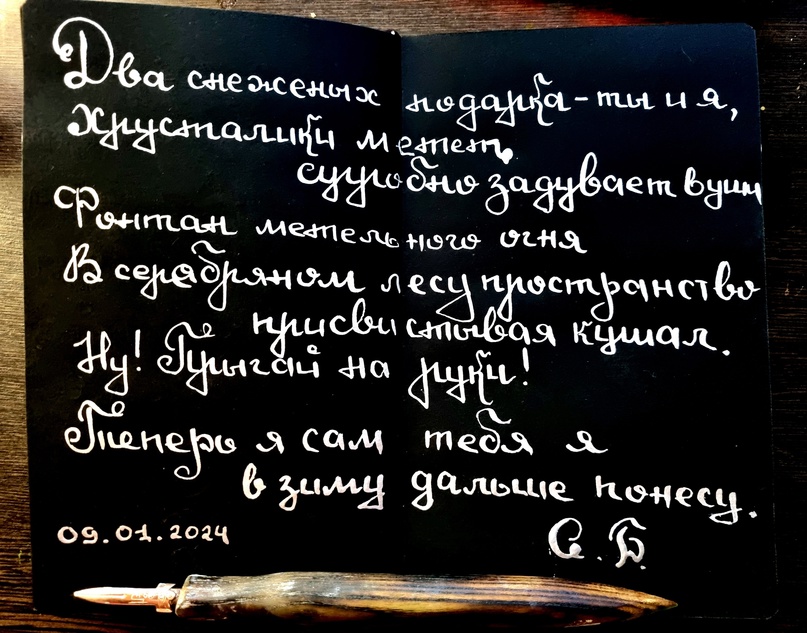 Два снеженых подарка - ты и я,
Хрусталики метет,
сугробно задувает в уши
Фонтан метельного огня
В серебряном лесу пространство
присвистывая кушал.
Ну! Прыгай на руки!
Теперь я сам тебя я
в зиму дальше понесу.
09.01.2024
С.Б.